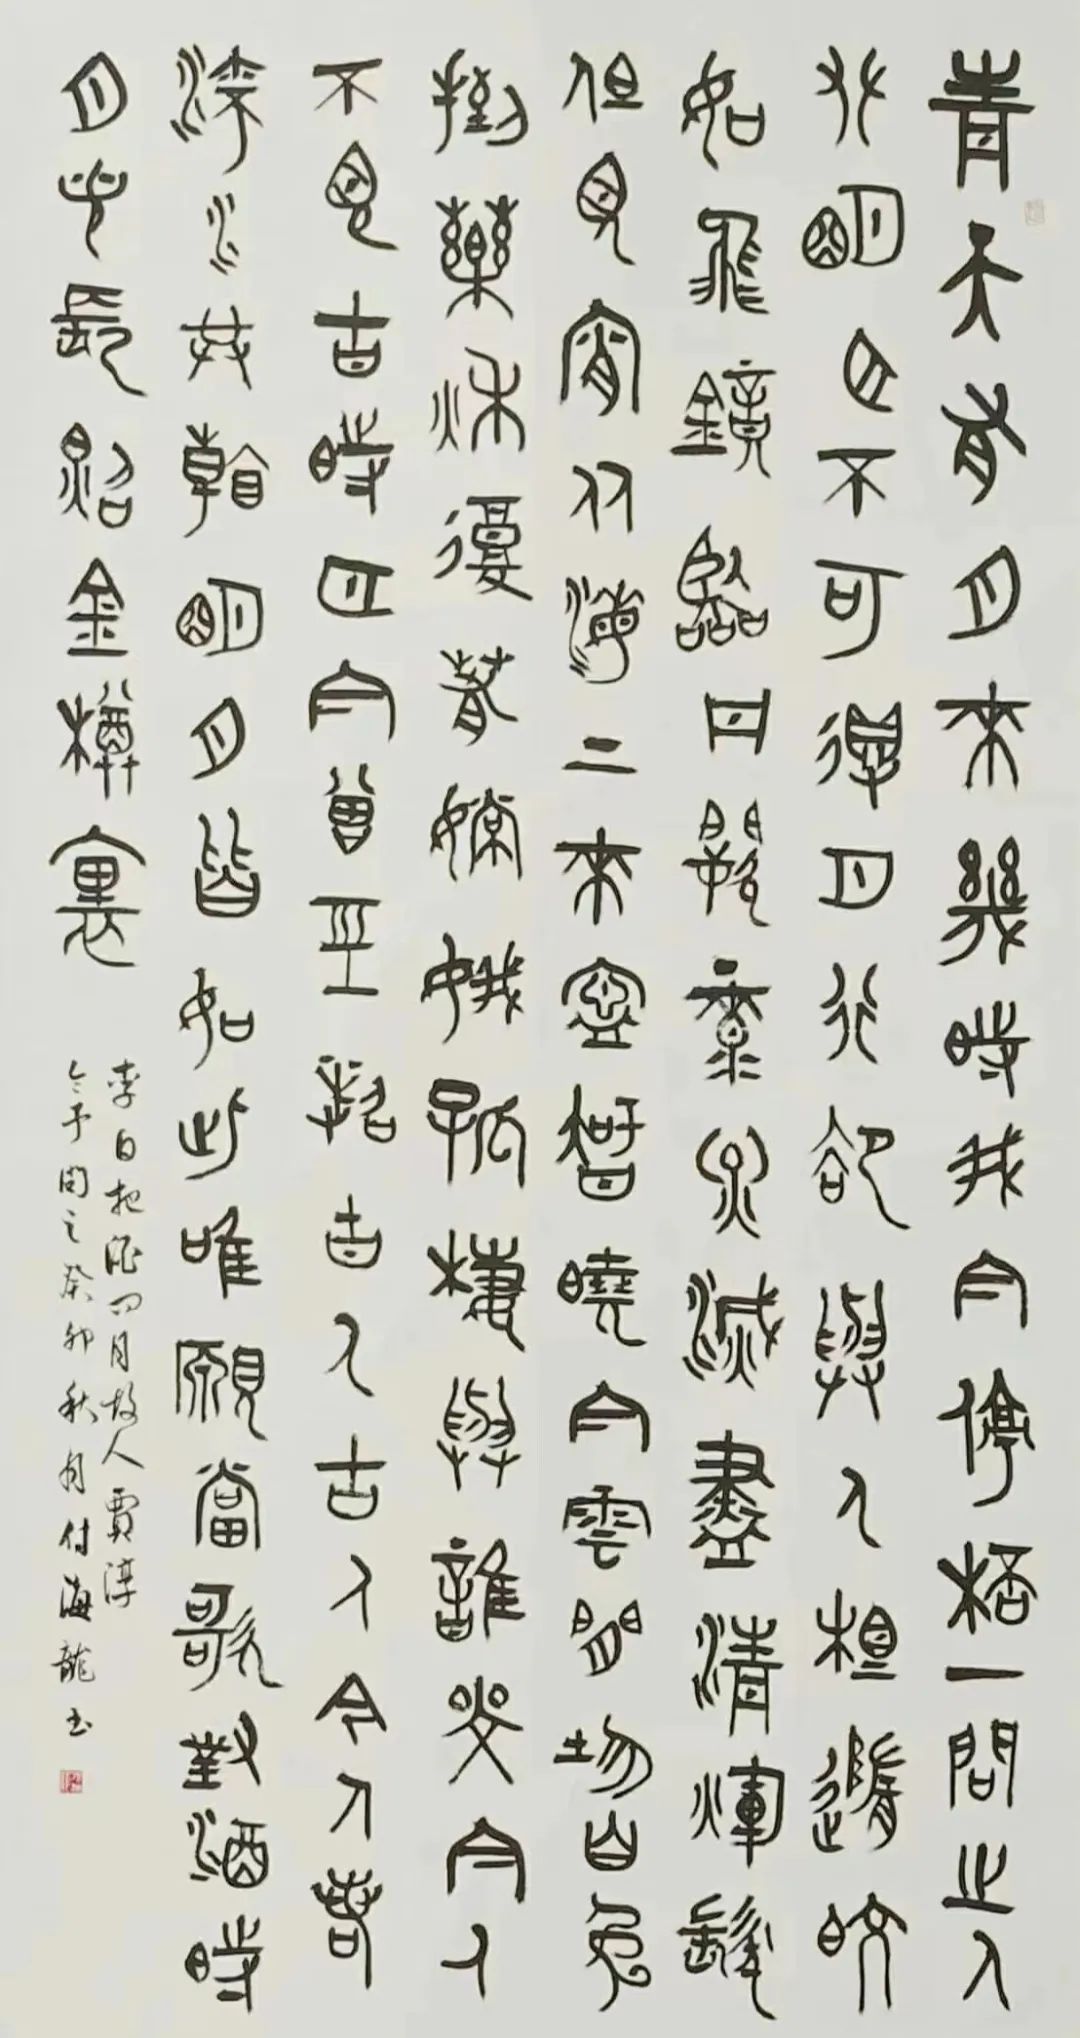 青天有月來幾時我今停桮一問之人
攀明月不可得月行卻與人相隨皎
如飛鏡臨丹闕綠煙滅盡清輝發
但見宵從海上來寧知曉向雲間沒白兔
擣藥秋復春嫦娥孤棲與誰鄰今人
不見古時月今月曾經照古人古人今人若
流水共看明月皆如此唯願當歌對酒時
月光長照金樽裏
李白把酒問月故人賈淳
予之癸卯秋月付海龍書